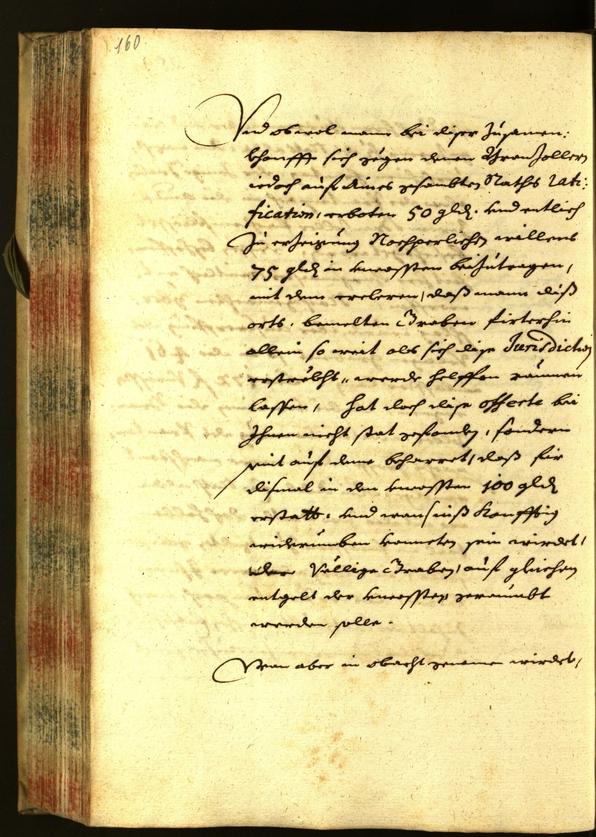 160
Und obwol mann bei diser Zusamen:
khonfft sich gegen denen
iedoch auf Aines gesambten Raths rati:
fication, erboten 50 gldn. und entlich
Zu erzeigung Nachperlichen willens
75 gldn in uncossten beizutragen,
mit dem mereren, daß mann diß
orts, bemelten Graben fürterhin
allein so weit als sich dise Jurisdiction
erströkht, werde helffen raumen
lassen, hat doch dise offerte bei
Ihnen nicht stat gefonden, sondern
mit auf deme beharret, daß für
dißmal in den uncossten 100 gldn
erstatt. und wans ins Konfftig
widerumben vonneten sein wirdet,
Völlige Graben, auf gleichen
entgelt der uncossten geraumbt
werden solle.
Wan aber in obacht genomen wirdet,